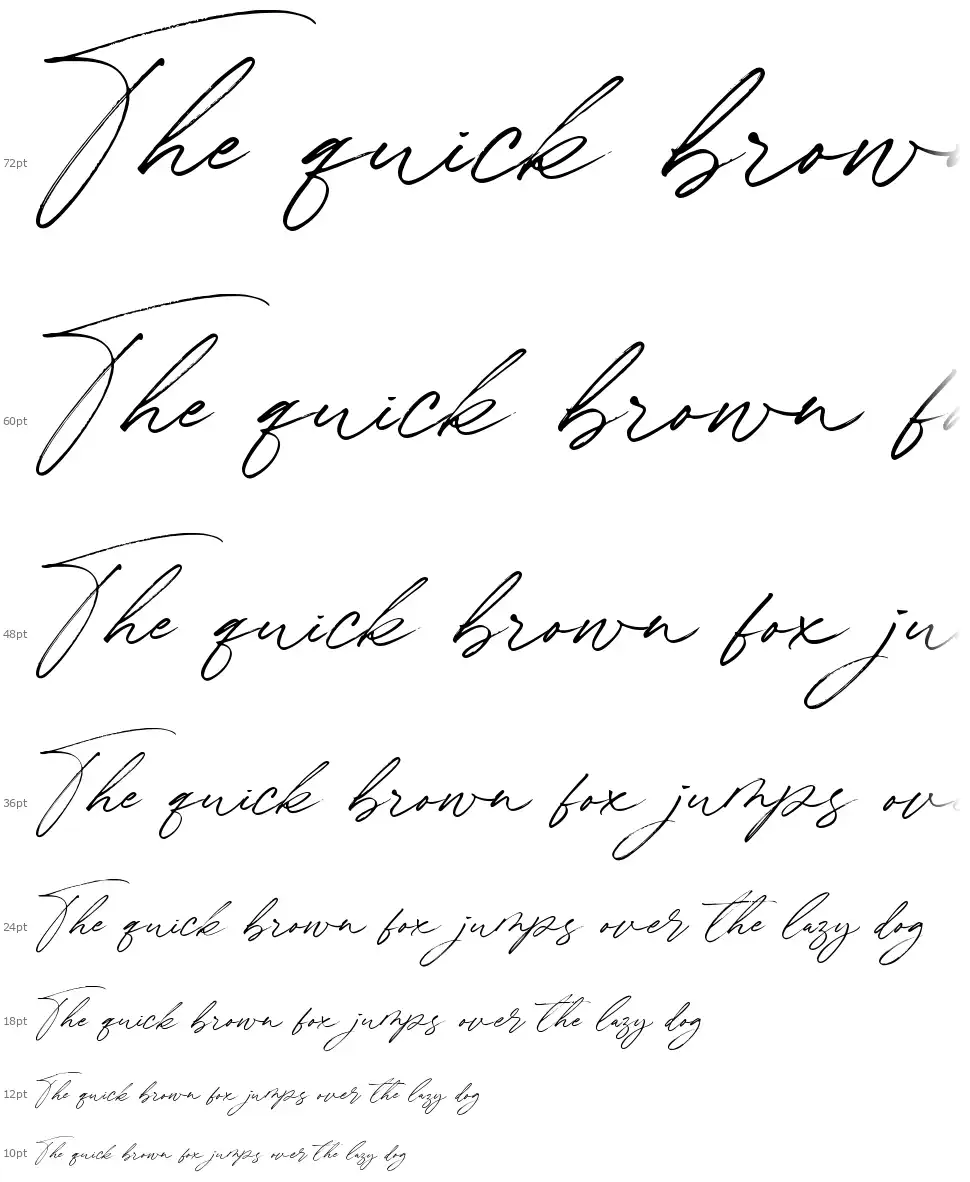 72pt The quick brow
60pt The quick brown f
48pt The quick brown fox ju
36pt The quick brown fox jumps ov
24pt The quick brown fox jumps over the lazy dog
18pt The quick brown fox jumps over the lazy dog
12pt The quick brown fox jumps over the lazy dog
10pt The quick brown fox jumps over the lazy dog